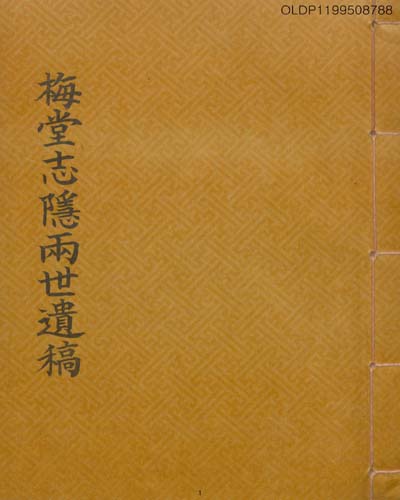 OLDP1199508788
梅堂志隱兩世遺稿
1